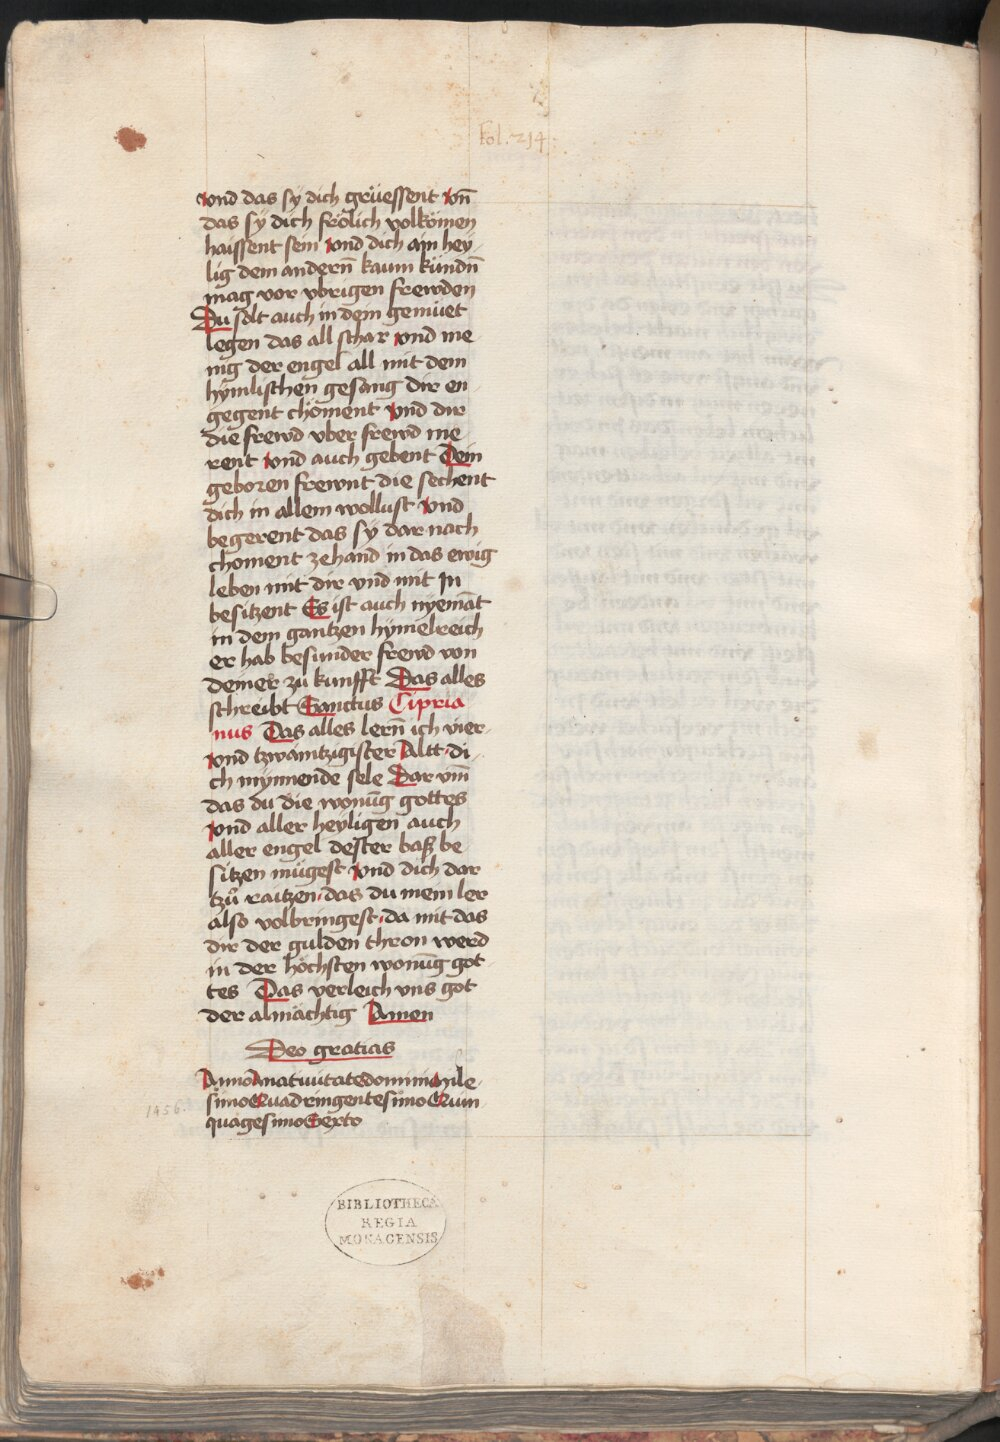 fol. 214
vnd das sÿ dich grüessent vn̄
das sÿ dich frölich volkömen
haissent sein vnd dich ain hey-
lig dem andern̄ kaum kündn̄
mag vor vbrigen frewden
Du solt auch in dein gemüet
legen das all schar vnd me
nig der engel all mit dem
hÿmlischen gesang dir en-
gegent chöment vnd dir
die frewd vber frewd me
rent vnd auch gebent Dein
geboren frewnt die sechent
dich in allem wollust vnd
begerent das sÿ dar nach
choment zehand in das ewig
leben mit dir vnd mit In
besitzent Es ist auch nyemāt
in dem gantzen hÿmelreich
er hab besunder frewd von
deiner zů kunfft Das alles
schreibt Sanctus Cipria
nus Das alles lern̄ ich vier-
vnd tzwaintzigister Altt di-
ch mÿnnende sele Dar vm̄
das du die wonūg gottes
vnd aller heyligen auch
aller engel dester baß be-
sitzen mügest vnd dich dar
tzů raitzen das du mein ler
also volbringest da mit das
dir der gulden thron werd
in der höchsten wonūg got
tes Das verleich vns got
der almächtig Amen
Deo gratias
Anno A natiuitate domini Mile-
simo Quadringentesimo Quin-
quagesimo Sexto
1456.
BIBLIOTHECA
REGIA
MONACENSIS